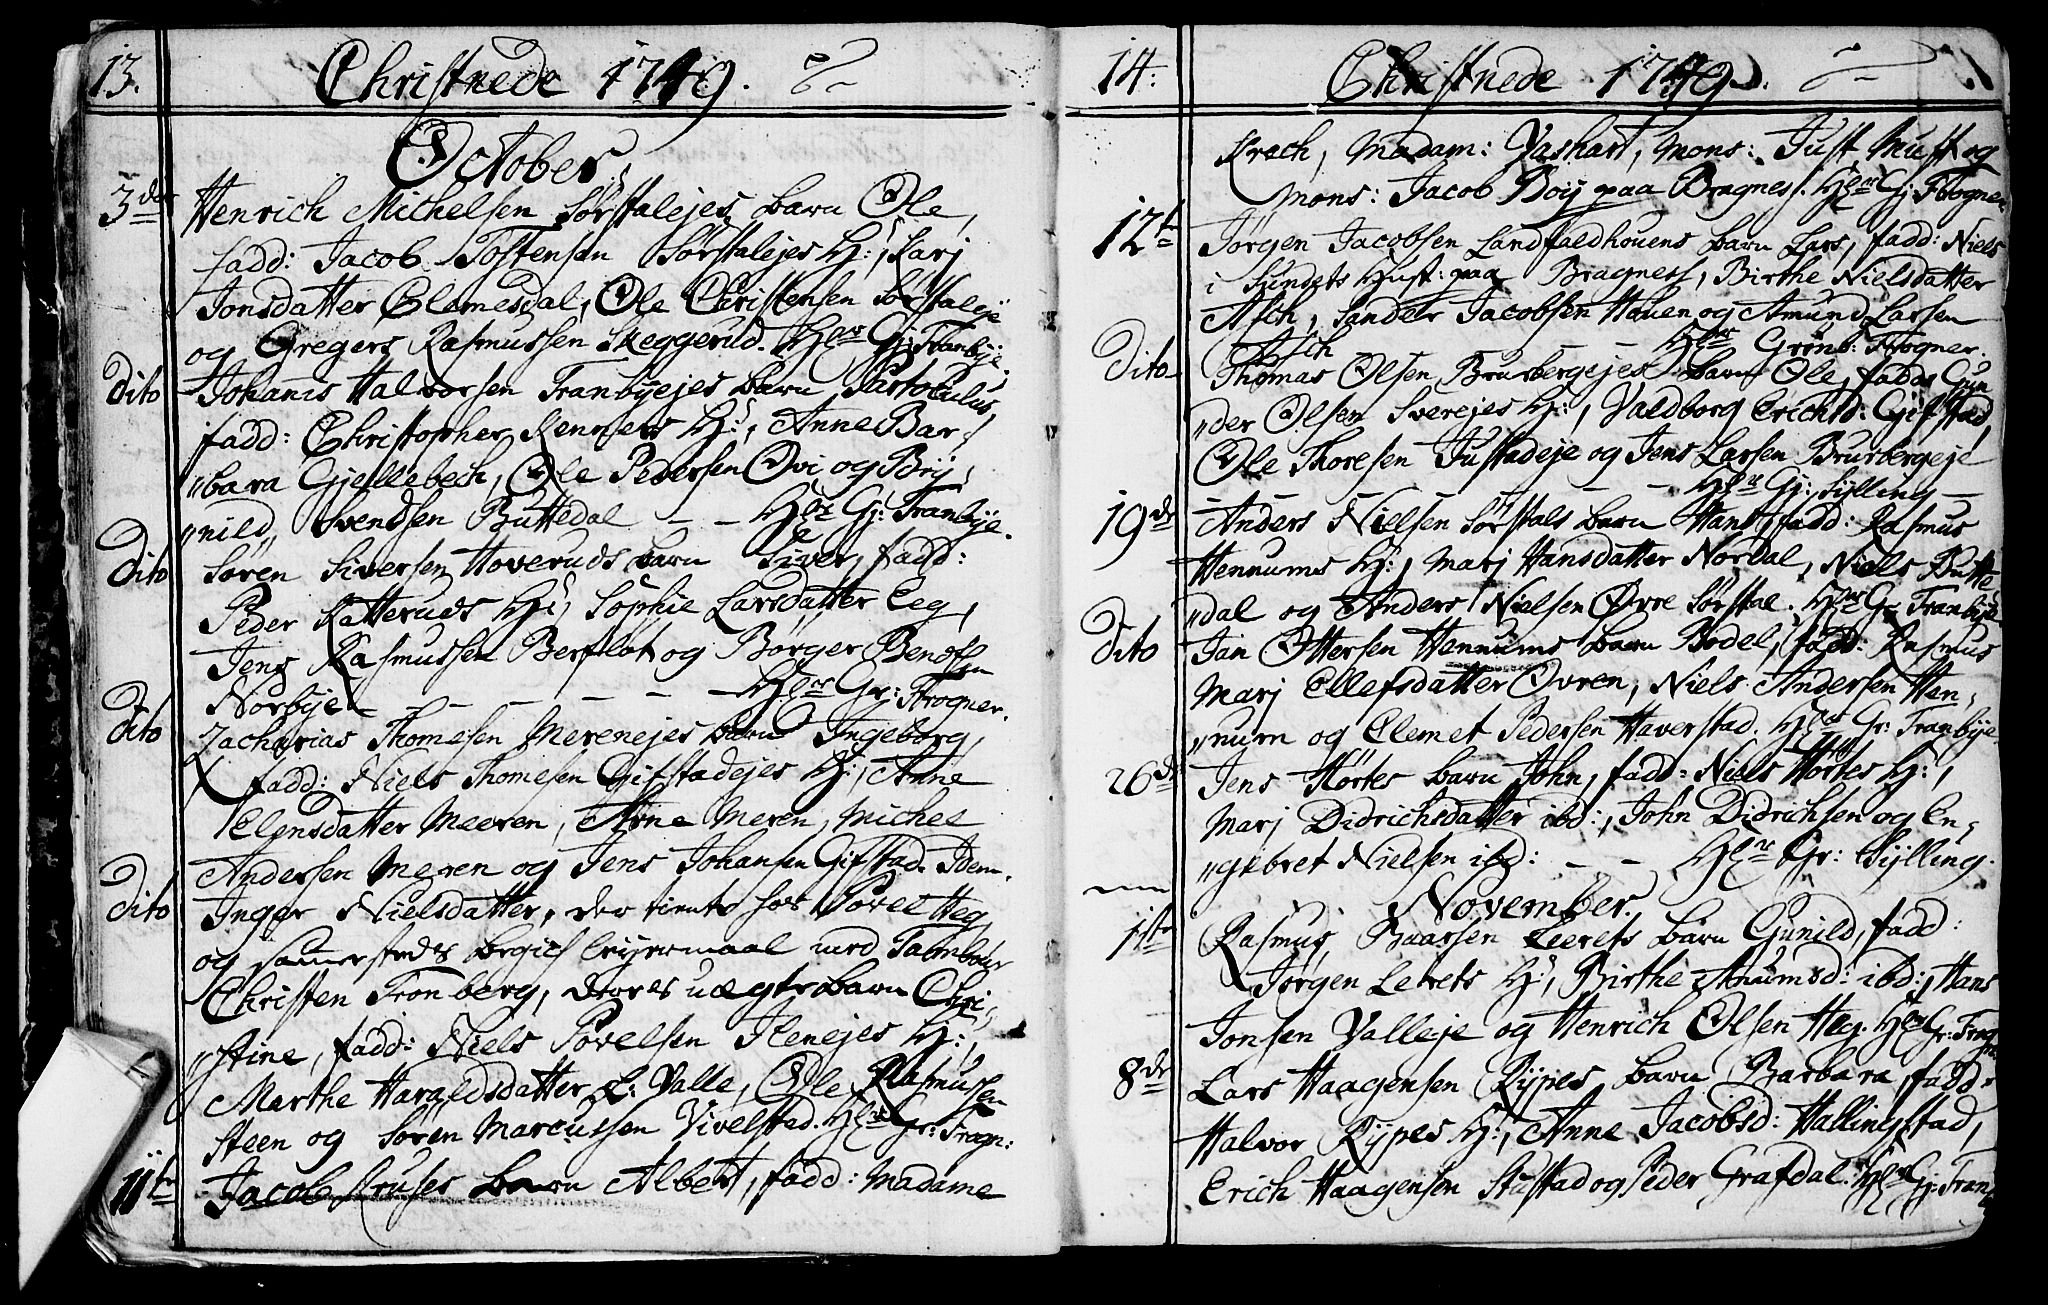 13. Christnede 1749.
October
3de Henrich Michelsen Sørstalejes barn Ole,
fadd: Jacob Tostensen Sørstalejes H:, Karj
Jonsdatter Clemesdal, Ole Christensen Sørstaleje
og Gregers Rasmussen Skeggerud. Hlør Gj: Tranbÿe.
dito Johanis Halvorsen Tranbÿejes barn Partoculus,
fadd: Christopher Rennsers H:, Anne Bar-
„bara Gjellebech, Ole Pedersen Øvi og Brÿ-
„nild Svendsen Buttedal – – Hlør Gj: Tranbÿe.
dito Søren Siversen Hoveruds barn Siver, fadd:
Peder Katteruds H:, Sophie Larsdatter Eeg,
Jens Rasmussen Berflot og Børger Bendtsen
Norbÿe – – – – – Hlør Gr: Frogner.
dito Zacharias Thomesen Merenejes barn Ingeborg,
fadd: Niels Thomesen Gifstadejes H:, Anne
Elensdatter Meeren, Arne Meren, Michel
Andersen Meren og Jens Johansen Gifstad. Idem.
dito Inger Nielsdatter, der tiente hos Povel Heg
og sammesteds begich leÿermaal med Tambour
Christen Tronberg, deres uægte barn Chri-
„stine, fadd: Niels Povelsen Ilenejes H:,
Marthe Haraldsdatter L: Valle, Ole Rasmussen
Steen og Søren Marcussen Vivelstad. Hlør Gr: Frogn:
11te Jacob Kruses barn Albert, fadd: Madame
14: Christnede 1749.
Krech, Madam: Vashart, Mons: Just Must og
Mons: Jacob Boÿ paa Bragness. Hlør Gj: Frogner.
12te Jørgen Jacobsen Landfaldhouens barn Lars, fadd: Niels
i Sundets Hust: paa Bragness, Birthe Nielsdatter
Asch, Sander Jacobsen Houen og Amund Larsen
Asch – – Hlør Grønb: Frogner.
dito Thomas Olsen Brusbergejes barn Ole, fadd: Gun
„der Olsen Sverejes H:, Valdborg Erichsd: Gifstad,
Ole Thoresen Justadeje og Jens Larsen Brusbergeje
– – – – Hlør Gj: Sÿlling –
19de Anders Nielsen Sørstals barn Hans, fadd: Rasmus
Hennums H:, Marj Hansdatter Nordal, Niels Butte
„dal og Anders Nielsen Øvre Sørstal. Hlør Gr: Tranbÿe
dito Jan Ottersen Hennums barn Bodel, fadd: Rasmus
Marj Ellefsdatter Øvren, Niels Andersen Hen-
„num og Clemet Pedersen Haverstad. Hlør Gr: Tranbÿe.
26de Jens Hørtes barn John, fadd: Niels Hørtes H:,
Marj Didrichsdatter ibd:, John Didrichsen og En-
„gebret Nielsen ibd: – – Hlør Gr: Sÿlling.
November.
1ste Rasmus Baarsen Leerets barn Gunild, fadd:
Jørgen Leerets H:, Birthe Amumsd: ibd:, Hans
Jonsen Valleje og Henrich Olsen Heg. Hlør Gr: Frogner
8de Lars Haagensen Rÿpes barn Barbara, fadd:
Halvor Rÿpes H:, Anne Jacobsd: Hallingstad,
Erich Haagensen Stustad og Peder Grafdal. Hlør Gr: Tranb